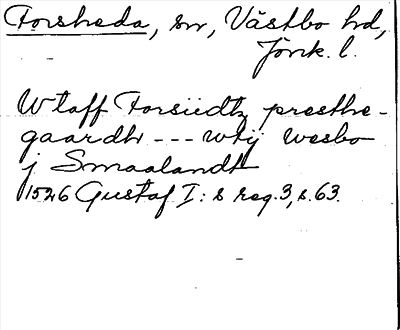 Forsheda, sn, Västbo hd,
Jönk. l.
Wtaff Forsiidtz presthe-
gaardh --- wtij Wesbo
j Smaalandh
1526 Gustaf I:s reg. 3, s. 63.